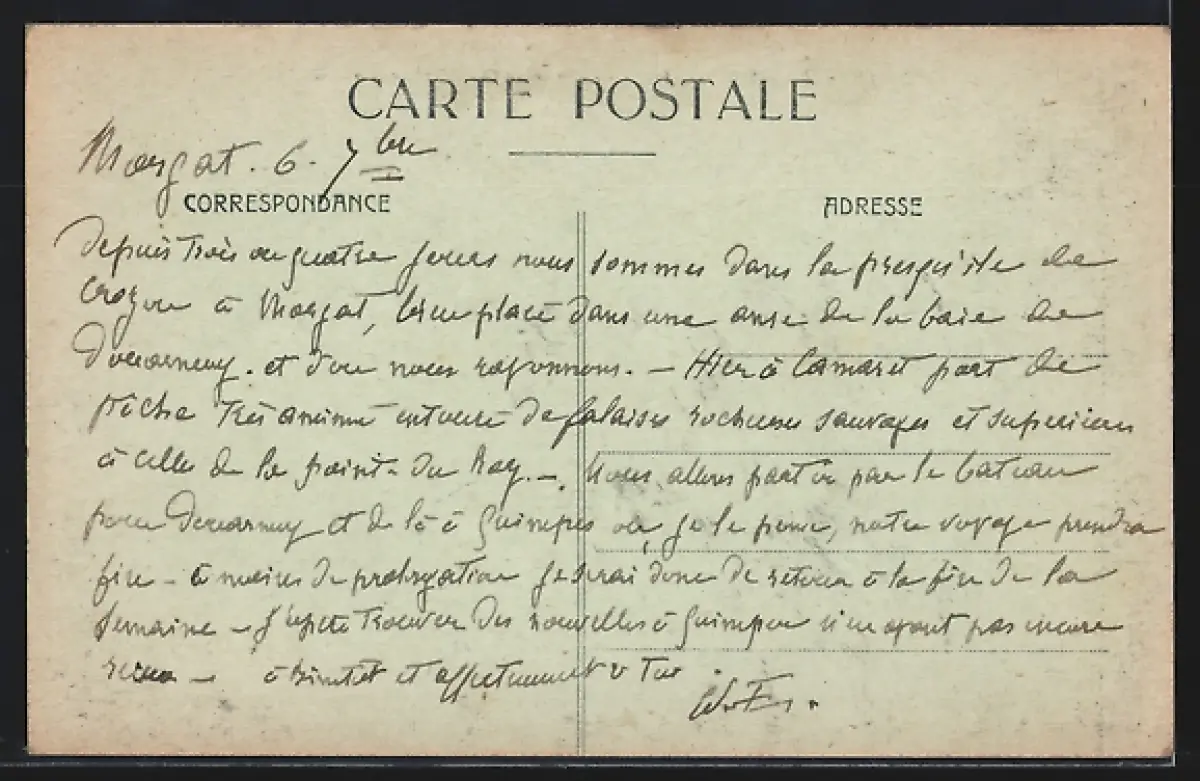 CARTE POSTALE
Morgat. 6. 7bre
CORRESPONDANCE
ADRESSE
Depuis trois ou quatre jours nous sommes dans la presqu'ile de
Crozon à Morgat, bien placé dans une anse de la baie de
Douarnenez. et d'ou nous rayonnons. — Hier à Camaret port de
pêche très animé entouré de falaises rocheuses sauvages et superieures
à celles de la pointe du Raz. — Nous allons partir par le bateau
pour Douarnenez et de là à Quimper ou, je le pense, notre voyage prendra
fin — à moins de prolongation je serai donc de retour à la fin de la
semaine — J'espère trouver des nouvelles à Quimper n'en ayant pas encore
reçu — à bientôt et affectueusement à toi